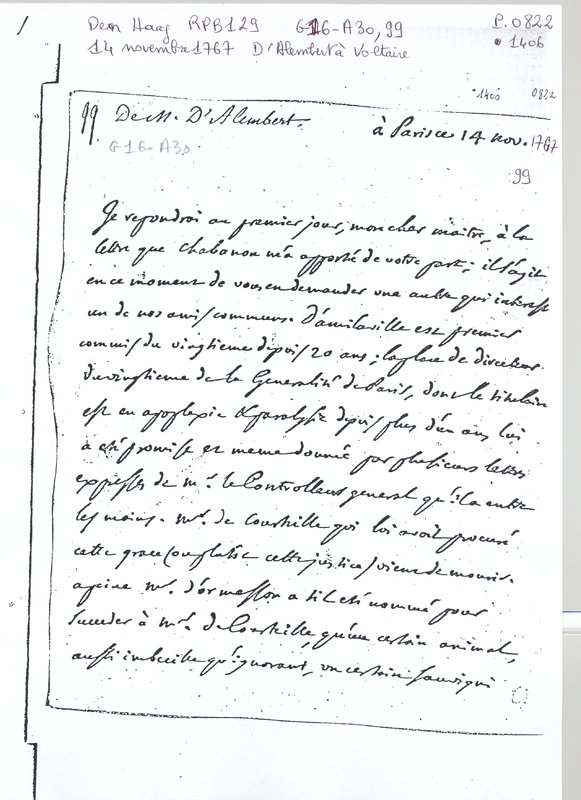 Den Haag RPB129 G16-A30,99 P.0822
14 novembre 1767 D'Alembert à Voltaire • 1406
• 1406 0822
99 De M. D'Alembert. à Paris ce 14 nov. 1767
G16-A30 99
Je repondrai au premier jour, mon cher maitre, à la
lettre que Chabanon m'a apporté de votre part; il s'agit
en ce moment de vous en demander une autre qui interesse
un de nos amis communs. Damilaville est premier
commis du vingtieme depuis 20 ans; la place de directeur
du vingtieme de la Generalité de Paris, dont le titulaire
est en apoplexie & paralysie depuis plus d'un an, lui
a été promise et meme donnée par plusieurs lettres
expresses de mr. le Controlleur general qu'il a entre
les mains. Mr. de Courteille qui lui avoit procuré
cette grace (ou plutôt cette justice) vient de mourir.
a peine mr. d'ormesson a t'il été nommé pour
succeder à mr. de Courteille, qu'un certain animal,
aussi imbecille qu'ignorant, un certain Sauvigni